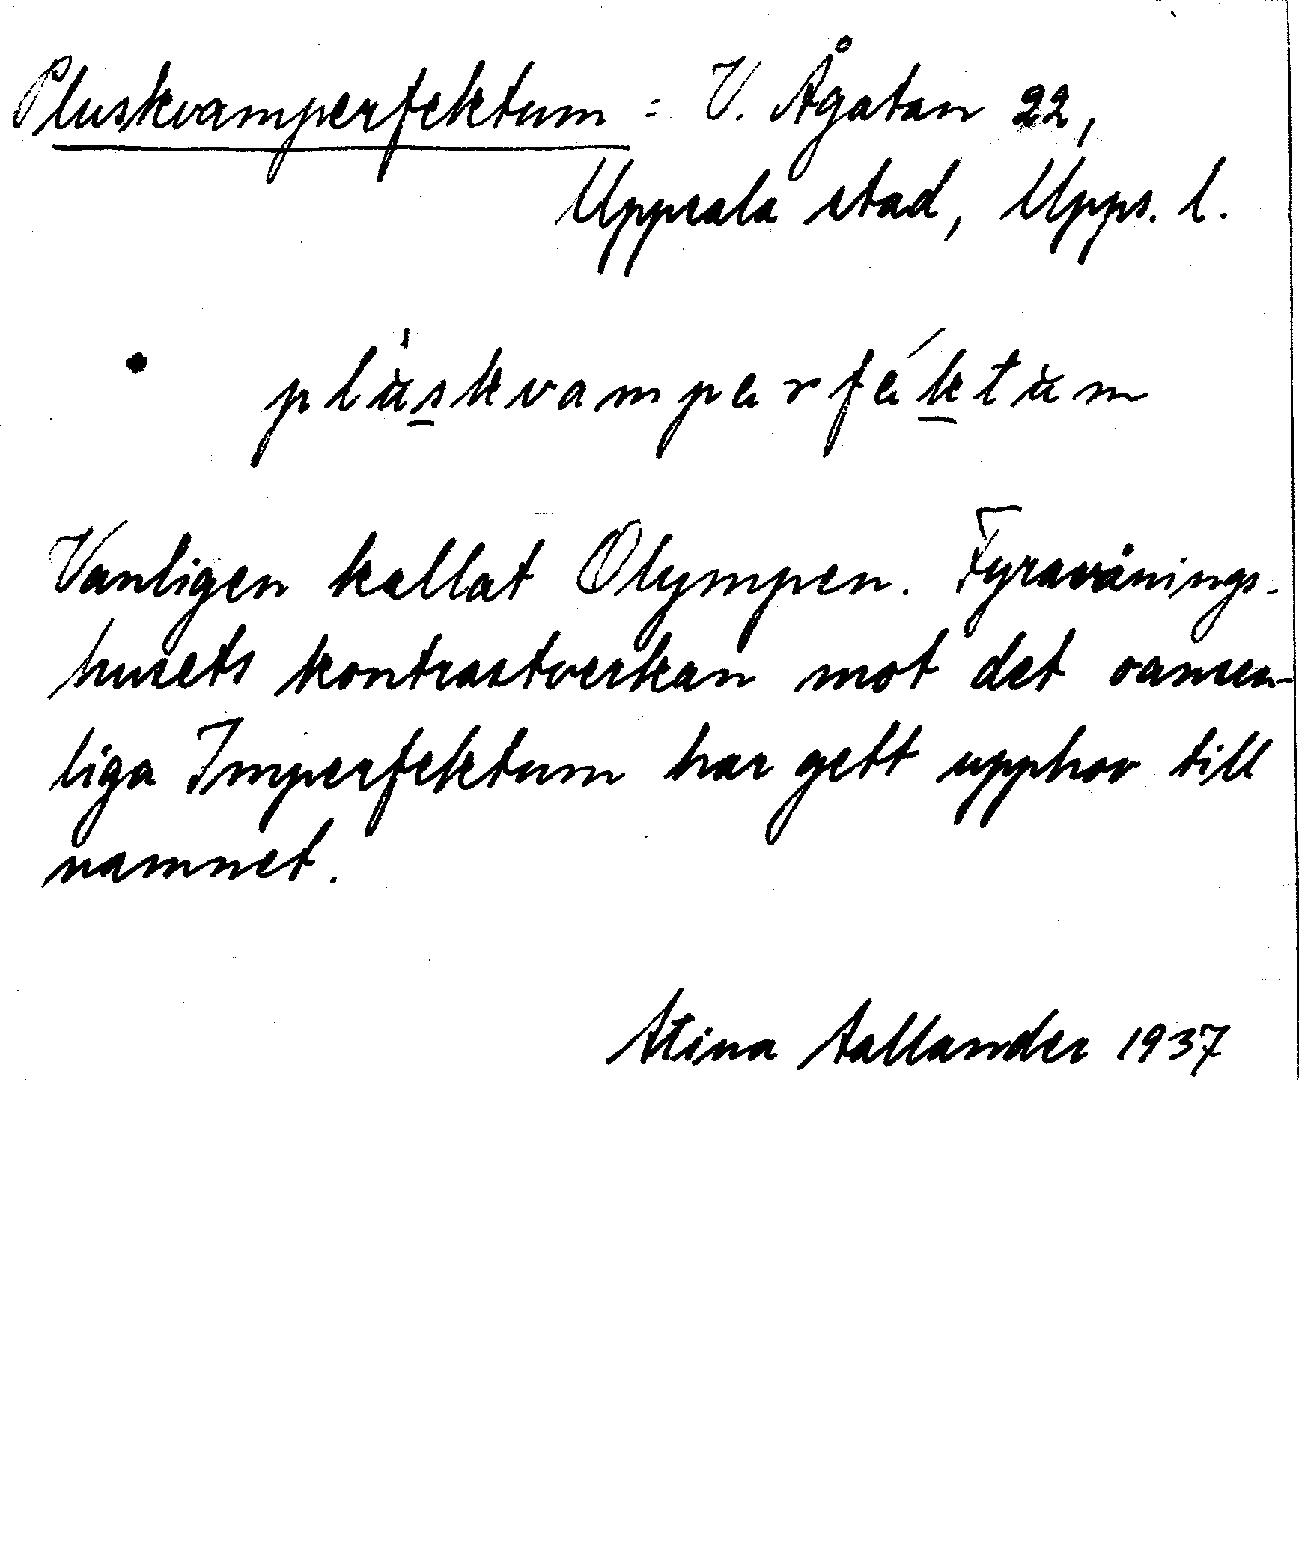 Pluskvamperfektum = V. Ågatan 22,
Uppsala stad, Upps. l.
plùskvamperféktùm
Vanligen kallat Olympen. Fyravånings-
husets kontrastverkan mot det oansen-
liga Imperfektum har gett upphov till
namnet.
Stina Sallander 1937